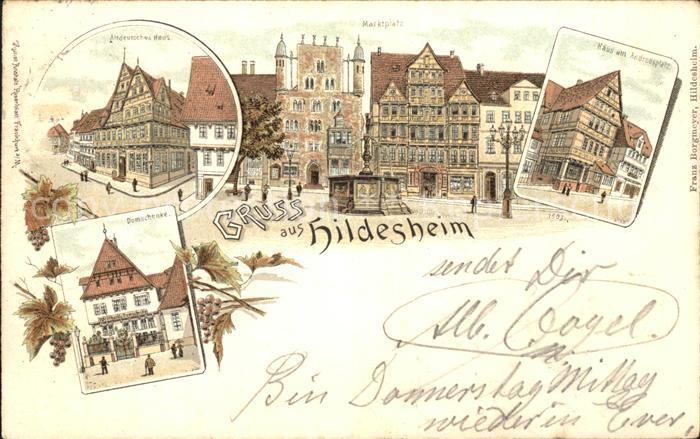 Marktplatz
Altdeutsches Haus.
Haus am Andreasplatz.
1502.
Domschenke.
GRUSS
aus Hildesheim
Franz Borgmeyer, Hildesheim.
sendet Dir
Alb. Vogel.
Bin Donnerstag Mittag
wieder in Ever,